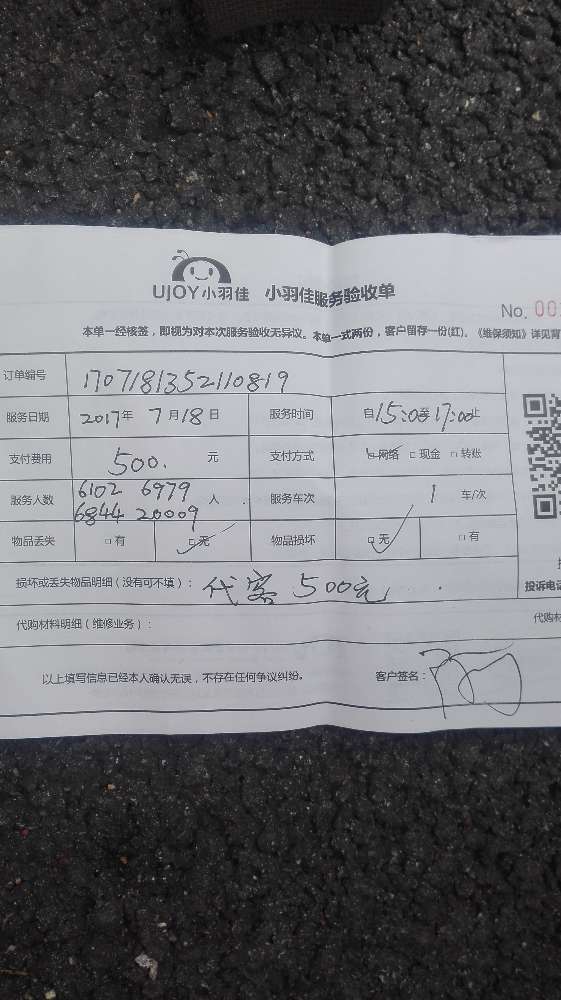 UJOY小羽佳 小羽佳服务验收单
No. 00
本单一经核签，即视为对本次服务验收无异议。本单一式两份，客户留存一份(红)。《维保须知》详见背
订单编号 1707181352110819
服务日期 2017年 7月18日 服务时间 自15:00至17:00止
支付费用 500. 元 支付方式 □网络 □现金 □转账
服务人数 6102 6979 人 服务车次 1 车/次
6844 20009
物品丢失 □有 □无 物品损坏 □无 □有
损坏或丢失物品明细（没有可不填）： 代客 500元 投诉电话
代购材料明细（维修业务）： 代购材
以上填写信息已经本人确认无误，不存在任何争议纠纷。 客户签名：